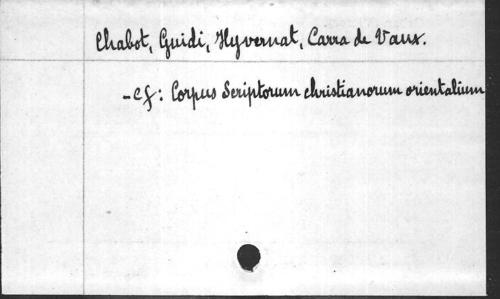 Chabot, Guidi, Hyvernat, Carra de Vaux.
- cf: Corpus Scriptorum christianorum orientalium